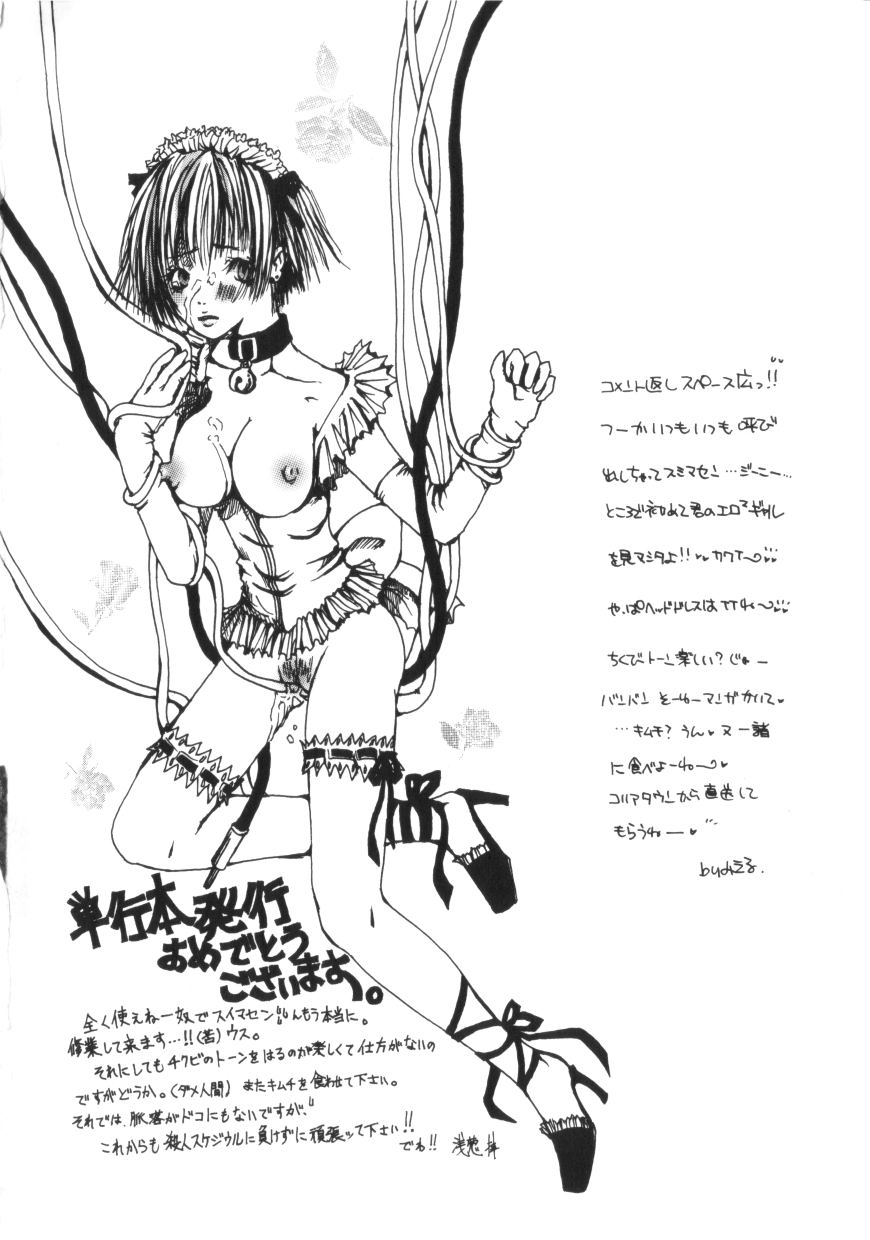 単行本発行
おめでとう
ございます。
全く使えねー奴でスイマセン゛んもう本当に。
修業して来ます…!!(苦)ウス。
それにしてもチクビのトーンをはるのが楽しくて仕方がないの
ですがどうか。(ダメ人間) またキムチを食わせて下さい。
それでは、脈落がドコにもないですが、
これからも殺人スケジウルに負けずに頑張ッて下さい!!
でわ!!
コメント返しスペース広っ!!
つーかいつもいつも呼び
だしちゃってスミマセン…ジーニー…
ところで初めて君のエロギャル
を見マシタよ!!♥♥カワイ〜
やっぱヘッドドレスはイイね〜
ちくびトーン楽しい?じゃー
バンバンそーゆーマンガかいて♥
…キムチ?うん♥又一諸
に食べよーね〜♥
コリアタウンから直送して
もらうねー♥
by みえる.